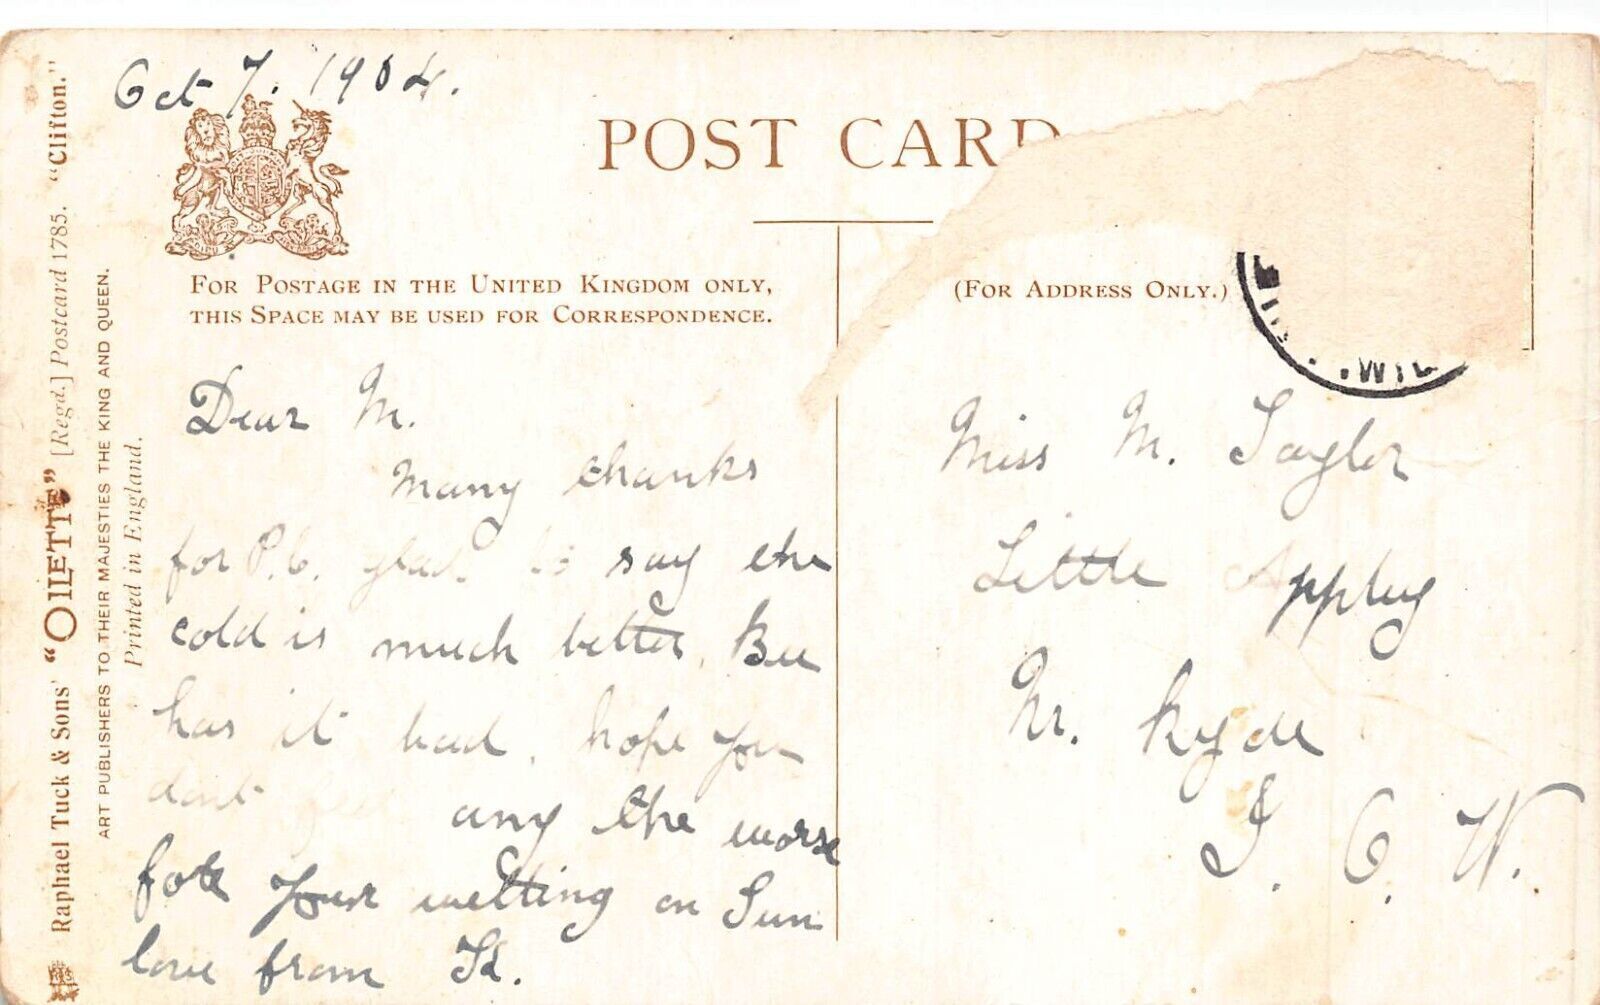 Oct 7. 1904.
POST CARD
FOR POSTAGE IN THE UNITED KINGDOM ONLY,
THIS SPACE MAY BE USED FOR CORRESPONDENCE.
(FOR ADDRESS ONLY.)
Dear M.
Many thanks
for P.C. glad to say the
cold is much better. Bee
has it bad. hope you
dont feel any the worse
for your wetting on Sun
love from
Miss M. Taylor
Little Appley
Nr. Ryde
I. O. W.
Raphael Tuck & Sons' "OILETTE" [Regd.] Postcard 1785. "Clifton."
ART PUBLISHERS TO THEIR MAJESTIES THE KING AND QUEEN.
Printed in England.